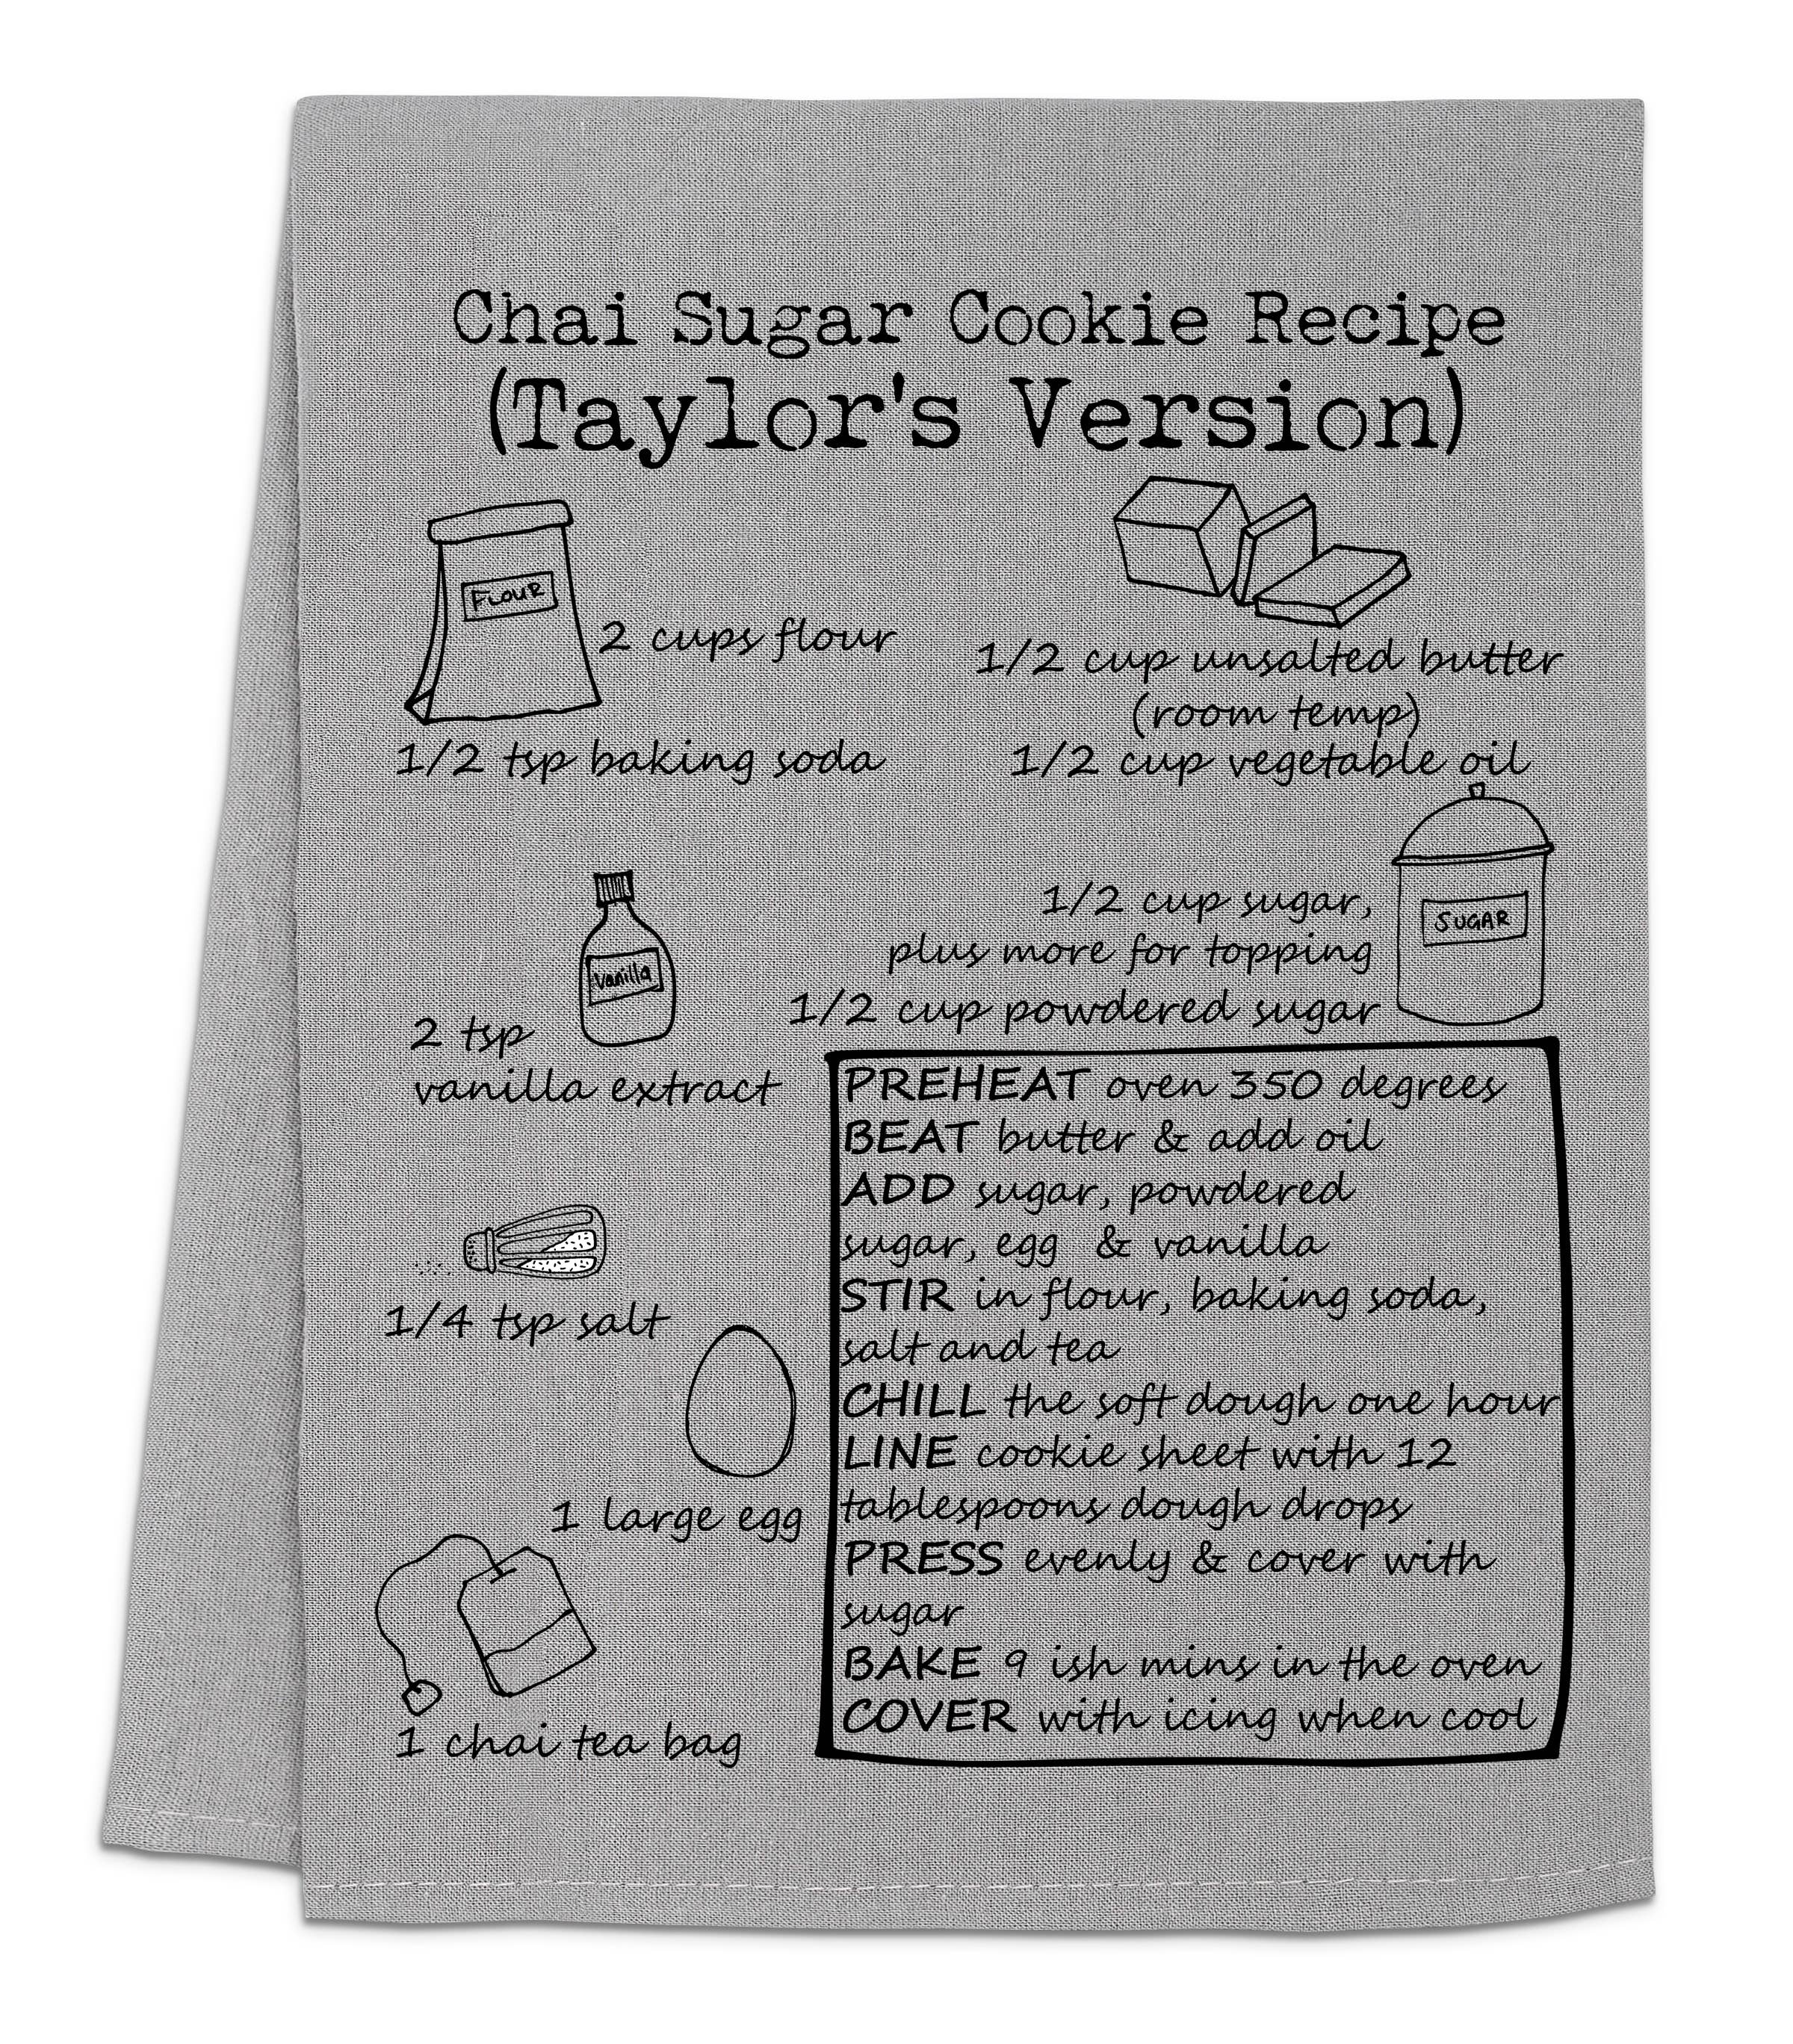 Chai Sugar Cookie Recipe
(Taylor's Version)
FLOUR
2 cups flour
1/2 tsp baking soda
1/2 cup unsalted butter
(room temp)
1/2 cup vegetable oil
1/2 cup sugar,
plus more for topping
1/2 cup powdered sugar
SUGAR
vanilla
2 tsp
vanilla extract
1/4 tsp salt
1 large egg
1 chai tea bag
PREHEAT oven 350 degrees
BEAT butter & add oil
ADD sugar, powdered
sugar, egg & vanilla
STIR in flour, baking soda,
salt and tea
CHILL the soft dough one hour
LINE cookie sheet with 12
tablespoons dough drops
PRESS evenly & cover with
sugar
BAKE 9 ish mins in the oven
COVER with icing when cool